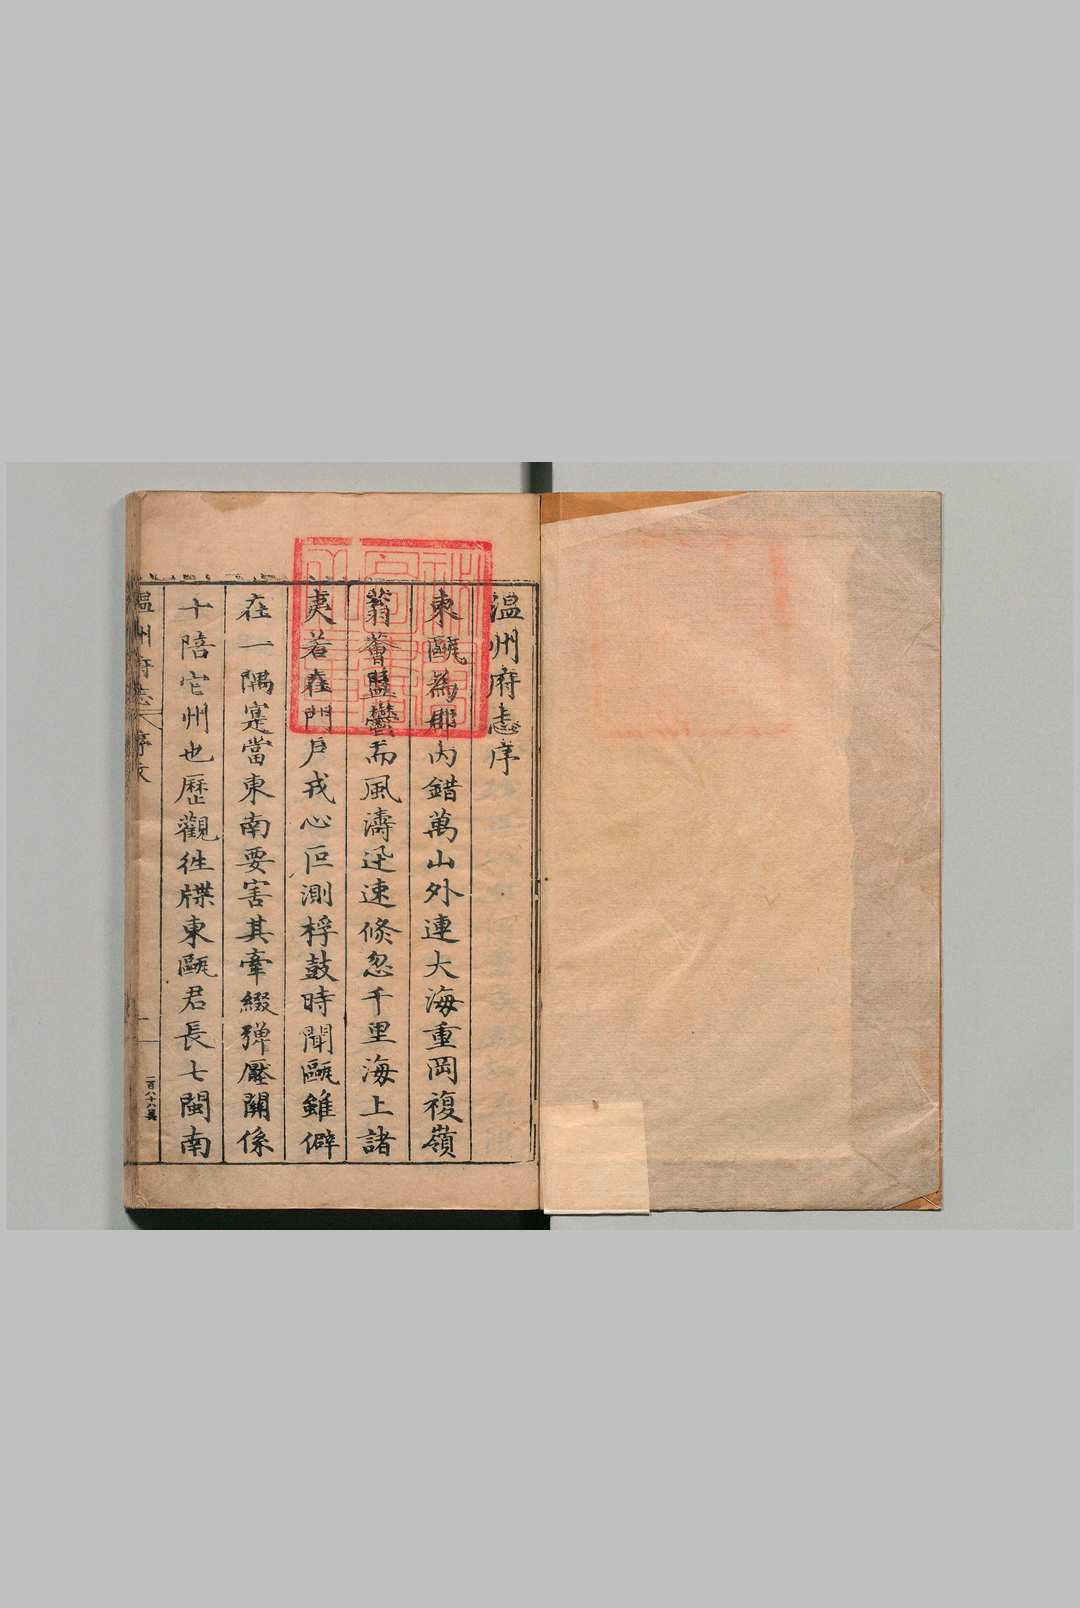 温州府志序
東甌為郡内錯萬山外連大海重岡復嶺
蓊薈盬鬱而風濤迅速倐忽千里海上諸
夷若在門戶戎心叵測桴鼓時聞甌雖僻
在一隅寔當東南要害其牽綴彈壓關係
十陪它州也歷觀徃牒東甌君長七閩南
温州府志 序文
一百八十八